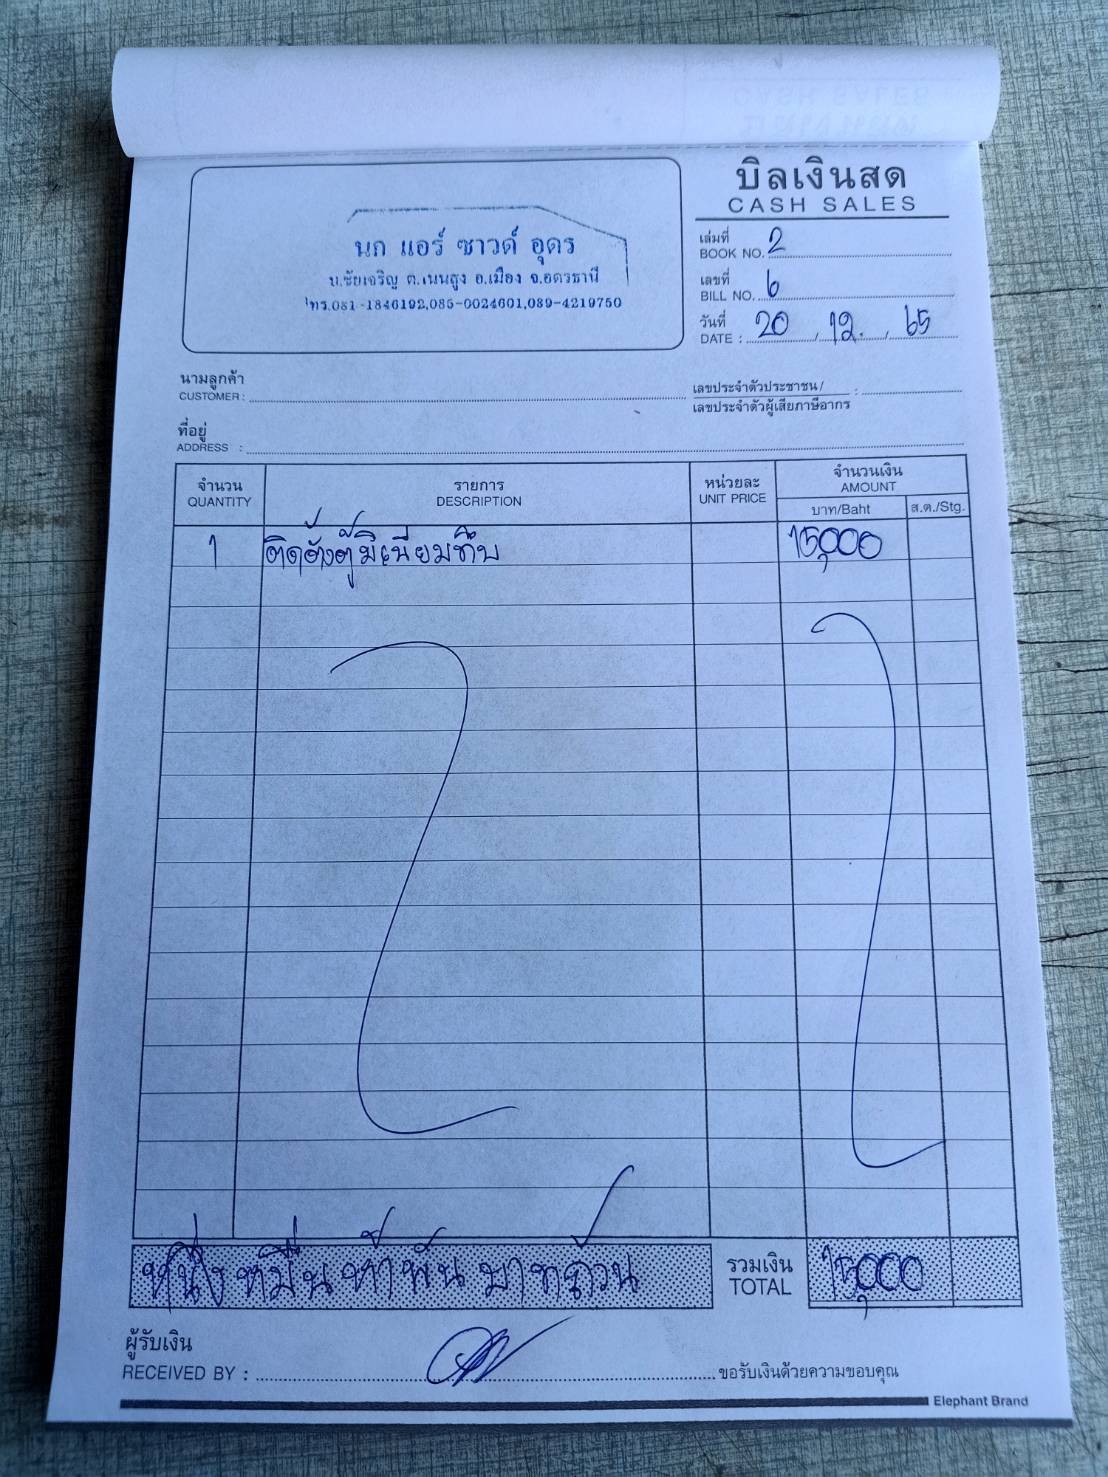 บิลเงินสด
CASH SALES
นก แอร์ ซาวด์ อุดร
บ.ชัยเจริญ ต.เนนสูง อ.เมือง จ.อุดรธานี
โทร.081-1846192,085-0024601,089-4219750
เล่มที่
BOOK NO. 2
เลขที่
BILL NO. 6
วันที่
DATE : 20 / 12. / 65
นามลูกค้า
CUSTOMER :
เลขประจำตัวประชาชน/ :
เลขประจำตัวผู้เสียภาษีอากร
ที่อยู่
ADDRESS :
จำนวน รายการ หน่วยละ จำนวนเงิน
QUANTITY DESCRIPTION UNIT PRICE AMOUNT
บาท/Baht ส.ต./Stg.
1 ติดตั้งตู้มิเนียมทึบ 15,000
หนึ่งหมื่นห้าพันบาทถ้วน
รวมเงิน
TOTAL 15,000
ผู้รับเงิน
RECEIVED BY : ขอรับเงินด้วยความขอบคุณ
Elephant Brand